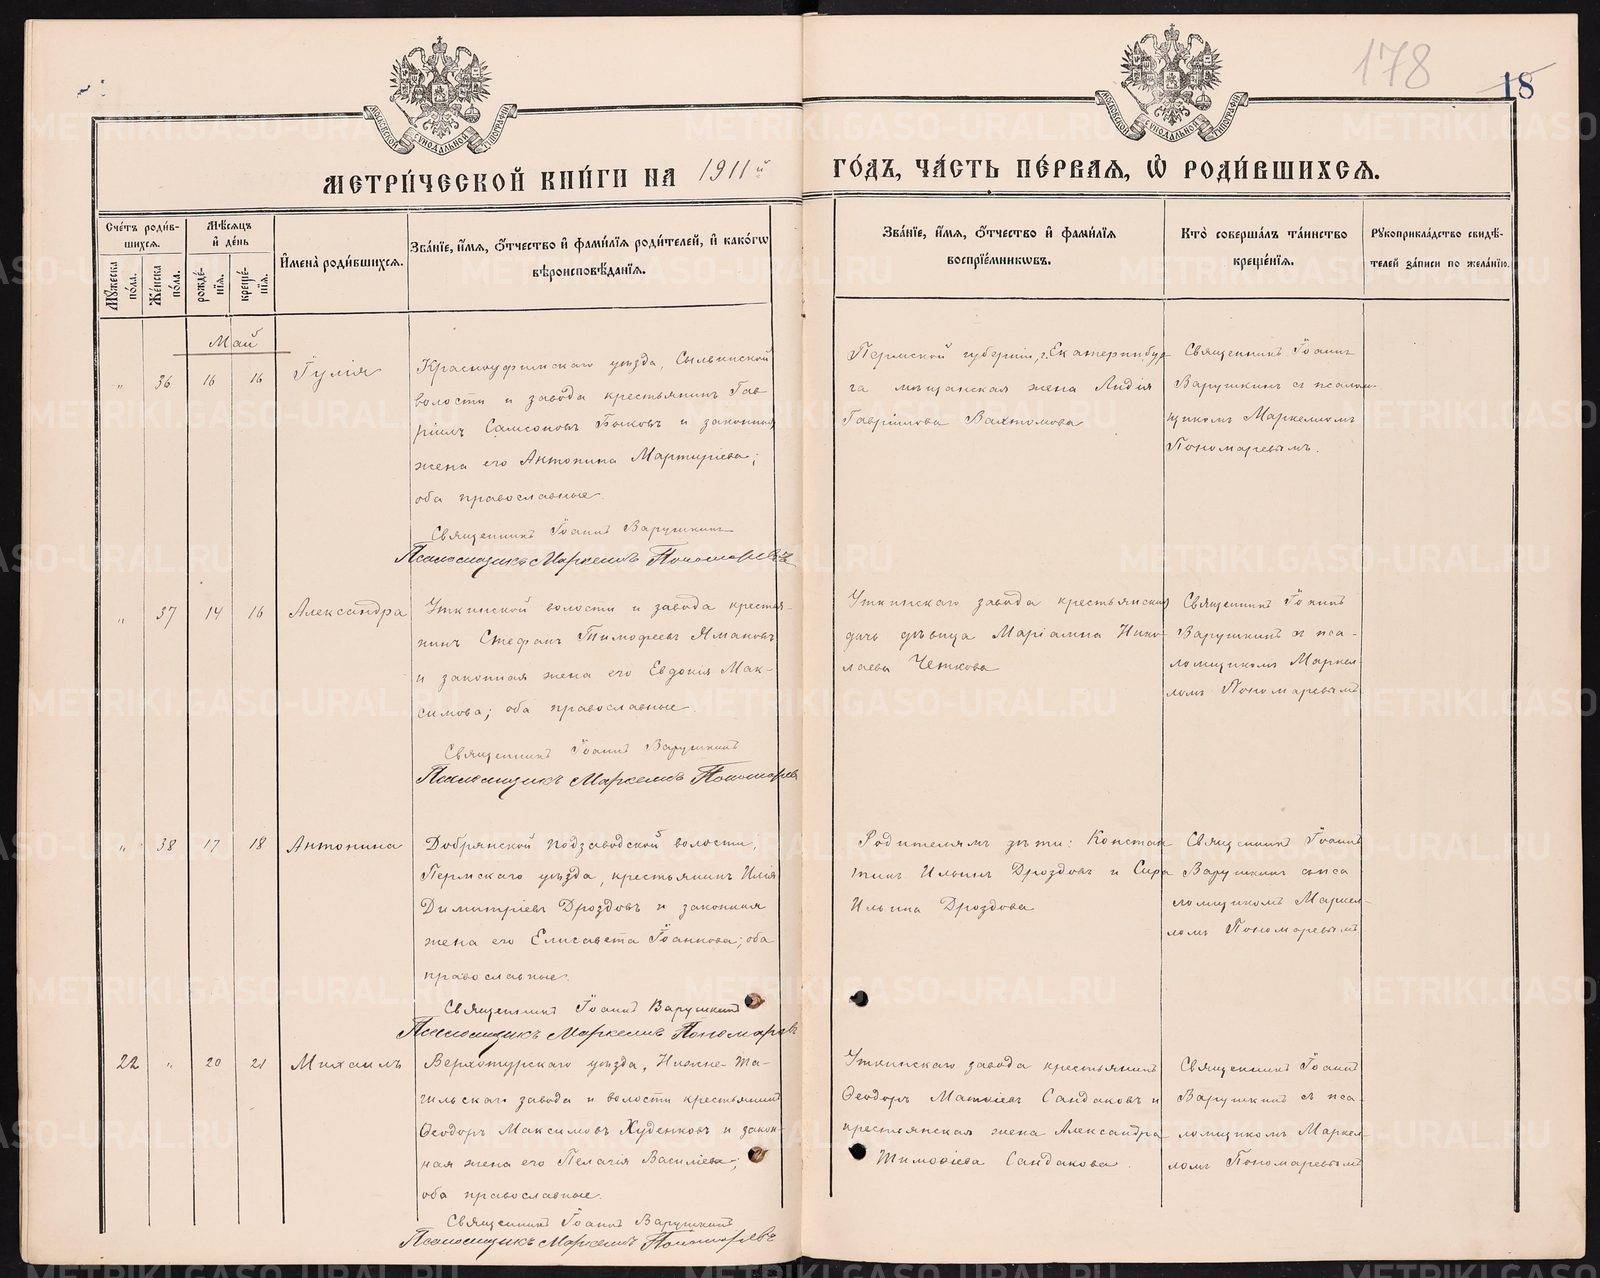 178
18
МОСКОВСКОЙ СѴНОДАЛЬНОЙ ТИПОГРАФІИ
МОСКОВСКОЙ СѴНОДАЛЬНОЙ ТИПОГРАФІИ
МЕТРИ́ЧЕСКОЙ КНИ́ГИ НА 1911й ГО́ДЪ, ЧА́СТЬ ПЕ́РВАЯ, Ѡ РОДИ́ВШИХСЯ.
Сче́тъ роди́в-
шихся.
Му́жеска по́ла.
Же́нска по́ла.
Мѣ́сяцъ
и҆ де́нь
рожде́-
нїя.
креще́-
нїя.
И҆мена̀ роди́вшихся.
Зва́нїе, и҆́мя, ѻ҆́тчество и҆ фами́лїя роди́телей, и҆ како́гѡ
вѣроисповѣ́данїя.
Зва́нїе, и҆́мя, ѻ҆́тчество и҆ фами́лїя
воспрїе́мникѡвъ.
Кто̀ соверша́лъ та́инство
креще́нїя.
Рꙋкоприкла́дство свидѣ́-
телей за́писи по жела́нїю.
Май
„ 36 16 16 Іулія
Красноуфимскаго уѣзда, Сылвинской
волости и завода крестьянинъ Гав-
ріилъ Самсоновъ Быковъ и законная
жена его Антонина Мартиріева;
оба православные.
Священникъ Іоаннъ Варушкинъ
Псаломщикъ Маркеллъ Пономаревъ
Пермской губерніи, г. Екатеринбур-
га мѣщанская жена Лидія
Гавріилова Вахтомова
Священникъ Іоаннъ
Варушкинъ съ псалом-
щикомъ Маркелломъ
Пономаревымъ.
„ 37 14 16 Александра
Уткинской волости и завода крестья-
нинъ Стефанъ Тимофеевъ Ямановъ
и законная жена его Евдокія Мак-
симова; оба православные
Священникъ Іоаннъ Варушкинъ
Псаломщикъ Маркеллъ Пономаревъ
Уткинскаго завода крестьянская
дочь дѣвица Маріамна Нико-
лаева Четкова
Священникъ Іоаннъ
Варушкинъ съ пса-
ломщикомъ Маркел-
ломъ Пономаревымъ
„ 38 17 18 Антонина
Добрянской Подзаводской волости,
Пермскаго уѣзда, крестьянинъ Илія
Димитріевъ Дроздовъ и законная
жена его Елисавета Іоаннова; оба
православные.
Священникъ Іоаннъ Варушкинъ
Псаломщикъ Маркеллъ Пономаревъ
Родителямъ дѣти: Констан-
тинъ Ильинъ Дроздовъ и Сира
Ильина Дроздова
Священникъ Іоаннъ
Варушкинъ съ пса-
ломщикомъ Маркел-
ломъ Пономаревымъ
22 „ 20 21 Михаилъ
Верхотурскаго уѣзда, Нижне-Та-
гильскаго завода и волости крестьянинъ
Ѳеодоръ Максимовъ Худенковъ и закон-
ная жена его Пелагія Василіева;
оба православные.
Священникъ Іоаннъ Варушкинъ
Псаломщикъ Маркеллъ Пономаревъ
Уткинскаго завода крестьянинъ
Ѳеодоръ Матѳіевъ Сандаковъ и
крестьянская жена Александра
Тимоѳіева Сандакова.
Священникъ Іоаннъ
Варушкинъ съ пса-
ломщикомъ Маркел-
ломъ Пономаревымъ
METRIKI.GASO-URAL.RU